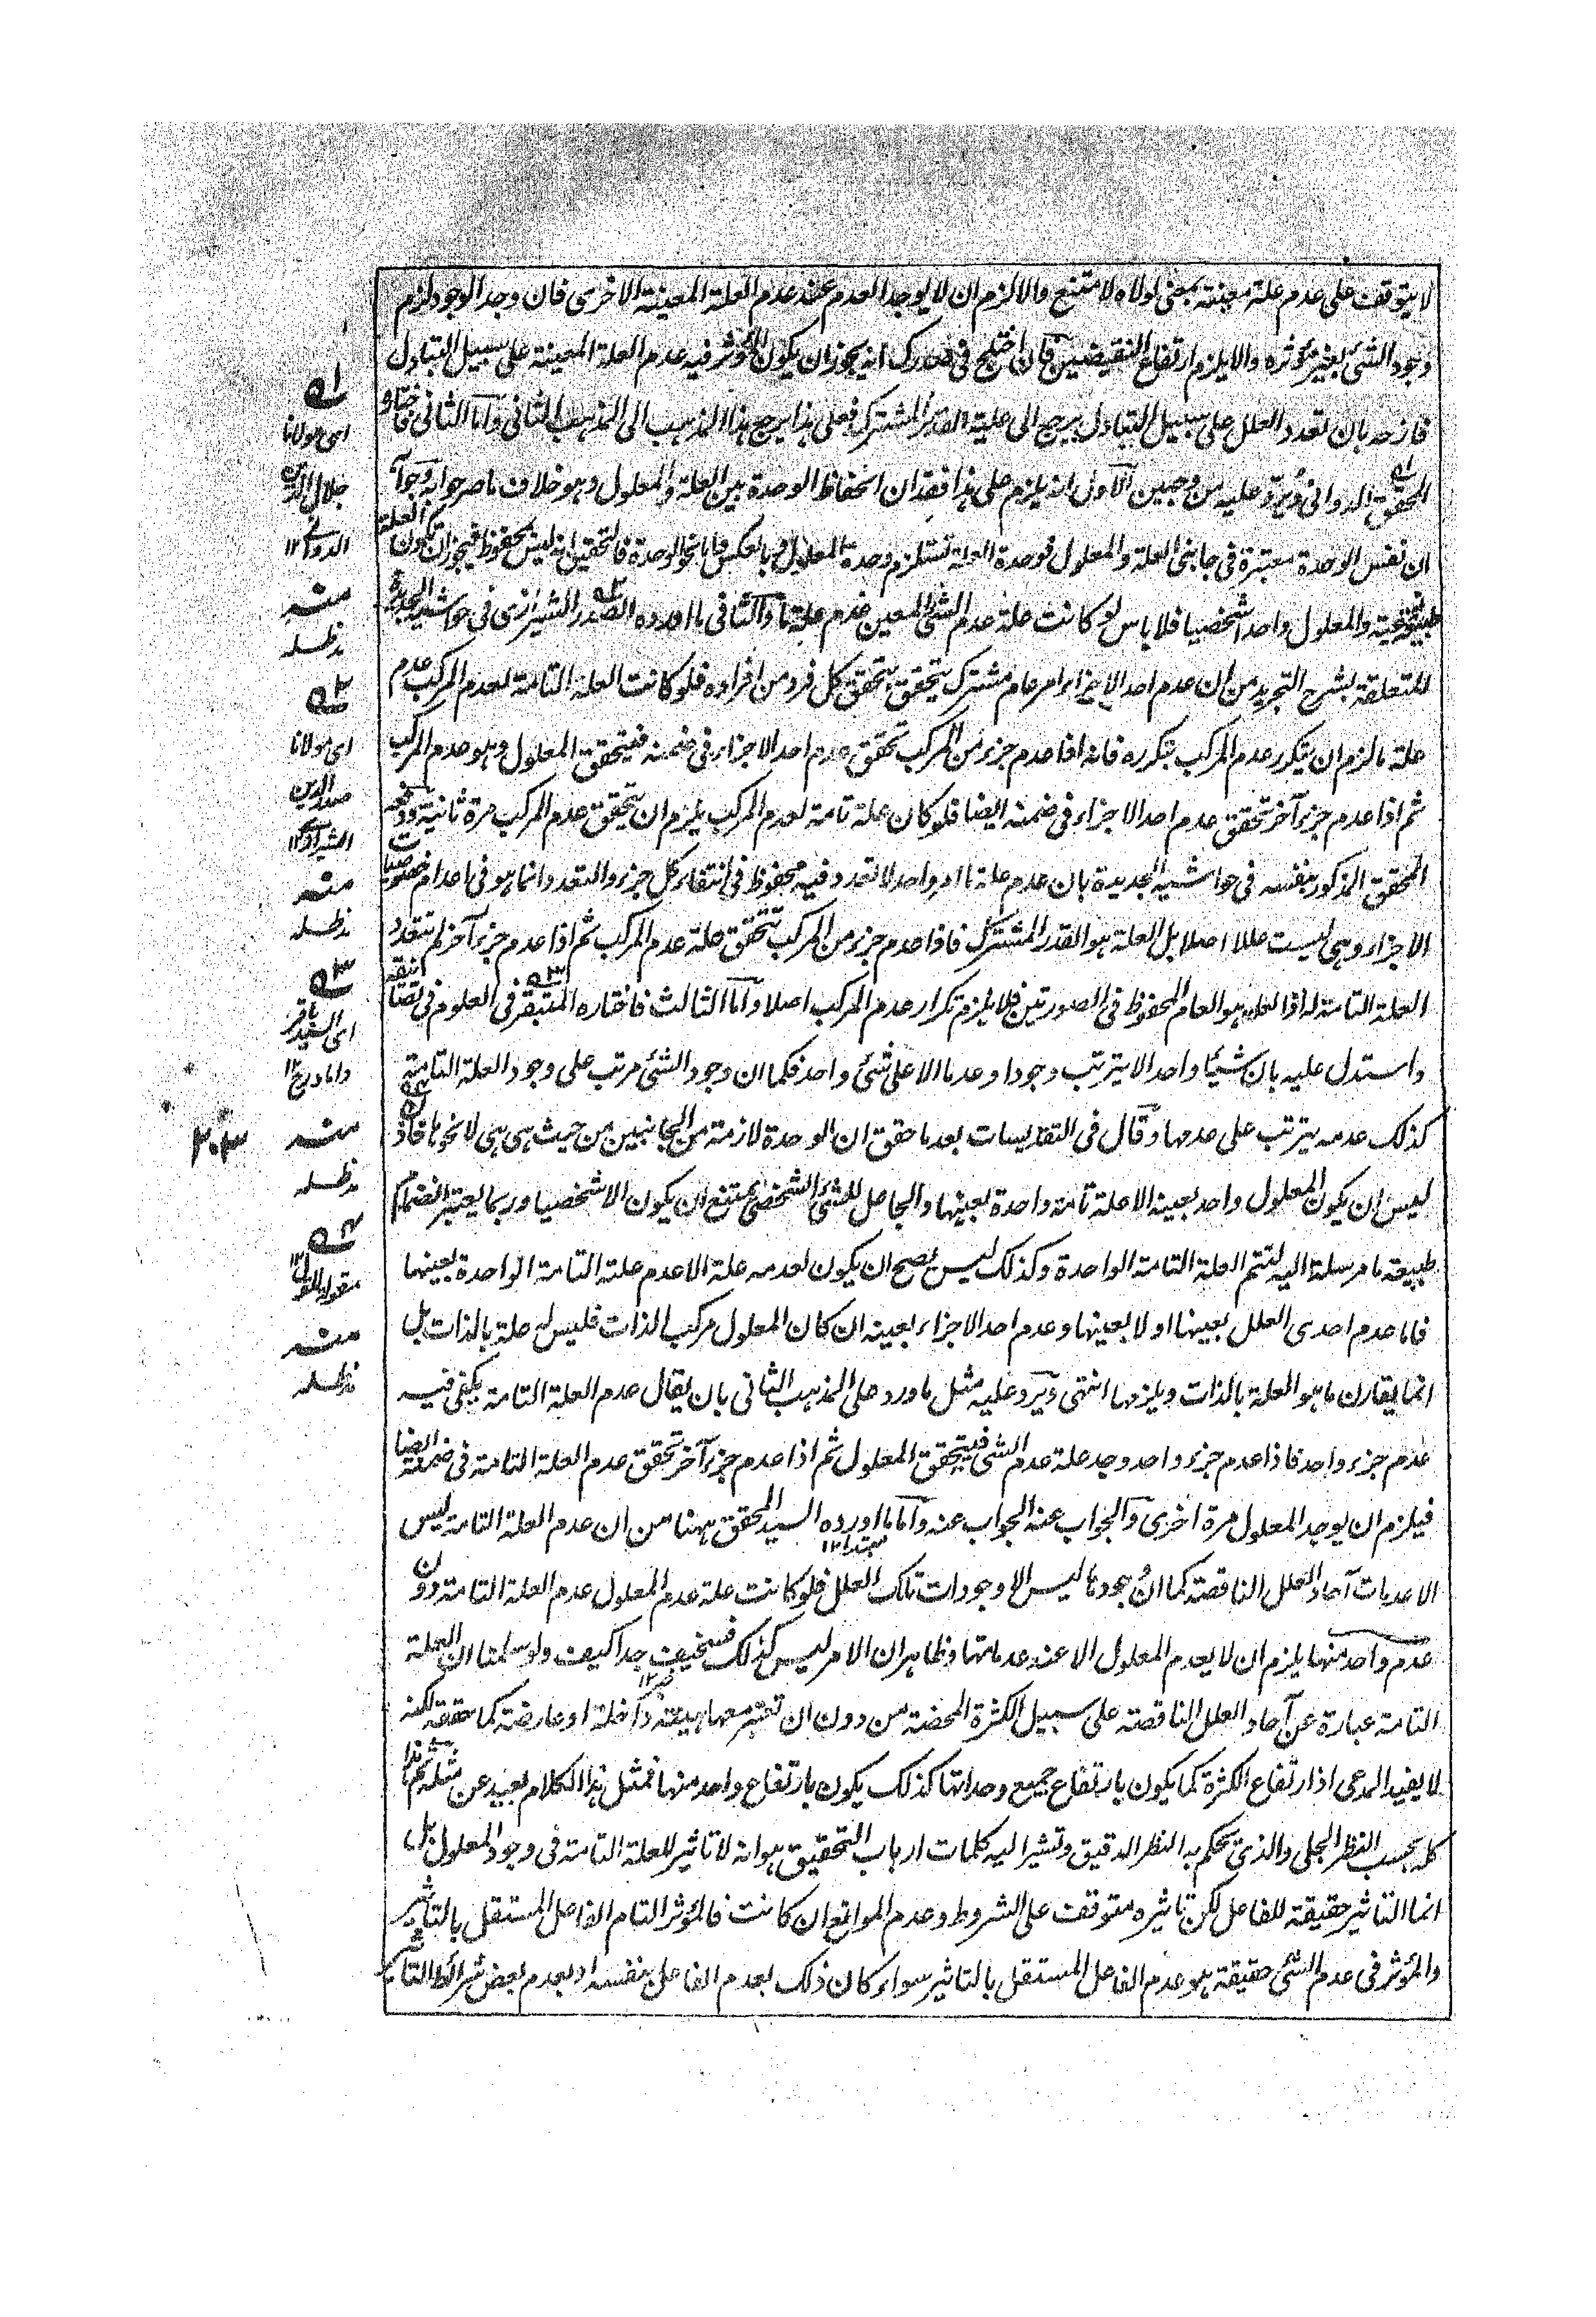 لا يتوقف على عدم علة معينة بمعنى لولاه لامتنع والا لزم ان لا يوجد العدم عند عدم العلة المعينة الاخرى فان وجد الوجود لزم
وجود الشئ بغير مؤثره والا يلزم ارتفاع النقيضين فان اختلج فى صدرك انه يجوز ان يكون المؤثر فيه عدم العلة المعينة على سبيل التبادل
فازحه بان تعدد العلل على سبيل التبادل يرجع الى علية القدر المشترك فعلى هذا يرجع هذا المذهب الى المذهب الثانى واما الثانى فاختاره
المحقق الدوانى ويرد عليه من وجهين الاول انه يلزم على هذا فقدان انحفاظ الوحدة بين العلة والمعلول وهو خلاف ما صرحوا به وجوابه
ان نفس الوحدة معتبرة فى جانبى العلة والمعلول فوحدة العلة تستلزم وحدة المعلول وبالعكس واما نحو الوحدة فالتحقيق انه ليس بمحفوظ فيجوز ان تكون العلة
طبيعة والمعلول واحدا شخصيا فلا باس لو كانت علة عدم الشئ المعين عدم علة ما والثانى ما اورده الصدر الشيرازى فى حواشيه الجديدة
المتعلقة بشرح التجريد من ان عدم احد الاجزاء امر عام مشترك يتحقق بتحقق كل فرد من افراده فلو كانت العلة التامة لعدم المركب عدم
علة ما لزم ان يتكرر عدم المركب بتكرره فانه اذا عدم جزء من المركب تحقق عدم احد الاجزاء فى ضمنه فيتحقق المعلول وهو عدم المركب
ثم اذا عدم جزء آخر تحقق عدم احد الاجزاء فى ضمنه ايضا فلو كان علة تامة لعدم المركب يلزم ان يتحقق عدم المركب مرة ثانية ودفعه
المحقق المذكور بنفسه فى حواشيه الجديدة بان عدم علة ما امر واحد لا تعدد فيه محفوظ فى انتفاء كل جزء والتعدد انما هو فى اعدام خصوصيات
الاجزاء وهى ليست عللا اصلا بل العلة هو القدر المشترك فاذا عدم جزء من المركب تتحقق علة عدم المركب ثم اذا عدم جزء آخر لم تتعدد
العلة التامة له اذ العلة هو العام المحفوظ فى الصورتين فلا يلزم تكرار عدم المركب اصلا واما الثالث فاختاره المتبقر فى العلوم فى تصانيفه
واستدل عليه بان شيئا واحدا لا يترتب وجودا وعدما الا على شئ واحد فكما ان وجود الشئ مرتب على وجود العلة التامة
كذلك عدمه يترتب على عدمها وقال فى التقديسات بعد ما حقق ان الوحدة لازمة من الجانبين من حيث هى هى لا نحوها فاذ
ليس ان يكون المعلول واحد بعينه الا علة تامة واحدة بعينها والجاعل للشئ الشخصى يمتنع ان يكون الا شخصيا وربما يعتبر انضمام
طبيعة ما مرسلة اليه لتتم العلة التامة الواحدة وكذلك ليس يصح ان يكون لعدمه علة الا عدم علته التامة الواحدة بعينها
فاما عدم احدى العلل بعينها او لا بعينها وعدم احد الاجزاء بعينه ان كان المعلول مركب الذات فليس له علة بالذات بل
انما يقارن ما هو العلة بالذات ويلزمها انتهى ويرد عليه مثل ما ورد على المذهب الثانى بان يقال عدم العلة التامة يكفى فيه
عدم جزء واحد فاذا عدم جزء واحد وجد علة عدم الشئ فيتحقق المعلول ثم اذا عدم جزء آخر تحقق عدم العلة التامة فى ضمنه ايضا
فيلزم ان يوجد المعلول مرة اخرى والجواب عنه الجواب عنه واما ما اورده السيد المحقق ههنا من ان عدم العلة التامة ليس
مبتدا ١٢
الا عدمات آحاد العلل الناقصة كما ان وجودها ليس الا وجودات تلك العلل فلو كانت علة عدم المعلول عدم العلة التامة دون
عدم واحد منها يلزم ان لا يعدم المعلول الا عند عدماتها وظاهر ان الامر ليس كذلك فسخيف جدا كيف ولو سلمنا ان العلة
خبر ١٢
التامة عبارة عن آحاد العلل الناقصة على سبيل الكثرة المحضة من دون ان تعتبر معها هيئة داخلة او عارضة كما حققه لكنه
لا يفيد المدعى اذ ارتفاع الكثرة كما يكون بارتفاع جميع وحداتها كذلك يكون بارتفاع واحد منها فمثل هذا الكلام بعيد عن مثله ثم هذا
كله بحسب النظر الجلى والذى يحكم به النظر الدقيق وتشير اليه كلمات ارباب التحقيق هو انه لا تاثير للعلة التامة فى وجود المعلول بل
انما التاثير حقيقة للفاعل لكن تاثيره متوقف على الشروط وعدم الموانع ان كانت فالمؤثر التام الفاعل المستقل بالتاثير
والمؤثر فى عدم الشئ حقيقة هو عدم الفاعل المستقل بالتاثير سواء كان ذلك بعدم الفاعل بنفسه او بعدم بعض شرائط التاثير
١؎
اى مولانا
جلال الدين
الدوانى ١٢
منه
مد ظله
٢؎
اى مولانا
صدر الدين
الشيرازى ١٢
منه
مد ظله
٣؎
اى السيد باقر
داماد رح ١٢
منه
مد ظله
٤؎
مقولة للقول ١٢
منه
مد ظله
٢٠٣